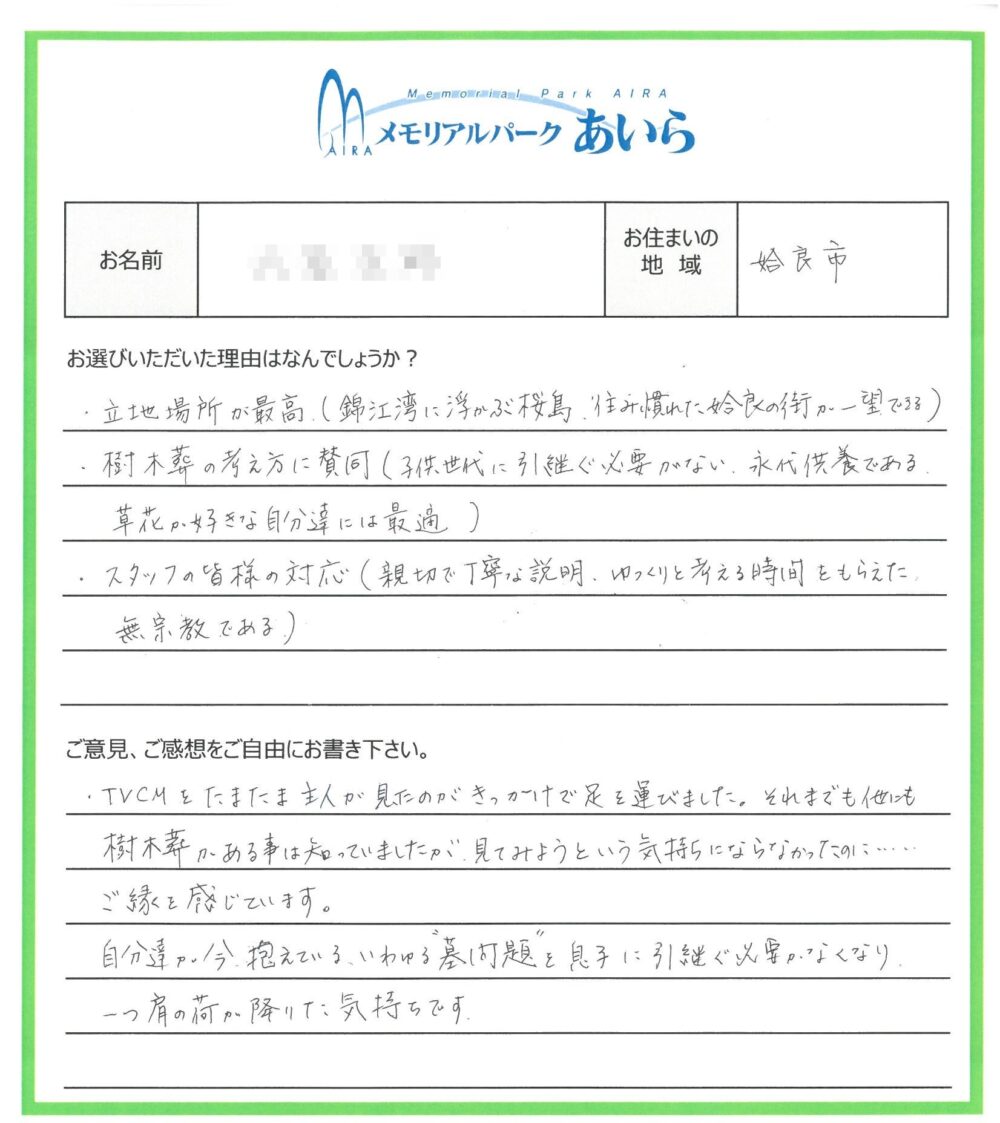 Memorial Park AIRA
AIRA
メモリアルパーク あいら
お名前
お住まいの
地域
姶良市
お選びいただいた理由はなんでしょうか？
・立地場所が最高（錦江湾に浮かぶ桜島、住み慣れた姶良の街が一望できる）
・樹木葬の考え方に賛同（子供世代に引継ぐ必要がない、永代供養である、
草花が好きな自分達には最適）
・スタッフの皆様の対応（親切で丁寧な説明、ゆっくりと考える時間をもらえた、
無宗教である）
ご意見、ご感想をご自由にお書き下さい。
・TVCMをたまたま主人が見たのがきっかけで足を運びました。それまでも他にも
樹木葬がある事は知っていましたが、見てみようという気持ちにならなかったのに……
ご縁を感じています。
自分達が今、抱えている、いわゆる"墓問題"を息子に引継ぐ必要がなくなり、
一つ肩の荷が降りた気持ちです。